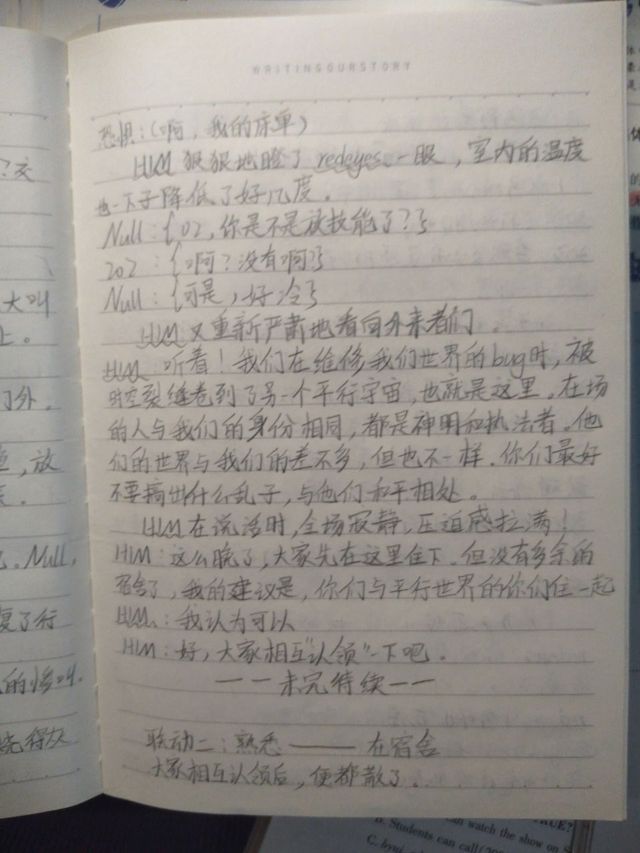 WRITINGOURSTORY
恐惧:(啊,我的床单)
HIM 狠狠地瞪了 redeyes 一眼,室内的温度
也一下子降低了好几度。
Null:{02,你是不是放技能了?}
202:{啊?没有啊?}
Null:{可是,好冷}
HIM 又重新严肃地看向外来者们。
HIM:听着!我们在维修我们世界的bug时,被
时空裂缝卷到了另一个平行宇宙,也就是这里。在场
的人与我们的身份相同,都是神明和执法者。他
们的世界与我们的差不多,但也不一样。你们最好
不要搞出什么乱子,与他们和平相处。
HIM在说话时,全场寂静,压迫感拉满!
HIM:这么晚了,大家先在这里住下。但没有多余的
宿舍了,我的建议是,你们与平行世界的你们住一起
HIM.:我认为可以
HIM:好,大家相互“认领”一下吧。
——未完待续——
联动二:熟悉——在宿舍
大家相互认领后,便都散了。
?亥
大叫
上。
门外。
放
Null,
复了行
的惨叫.
B. Students can call
can watch the show on S
TRUE?